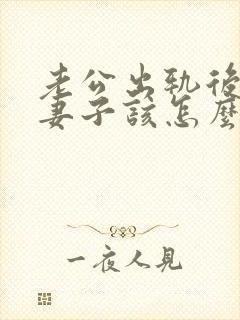 老公出轨後
妻子該怎麼
一夜人見